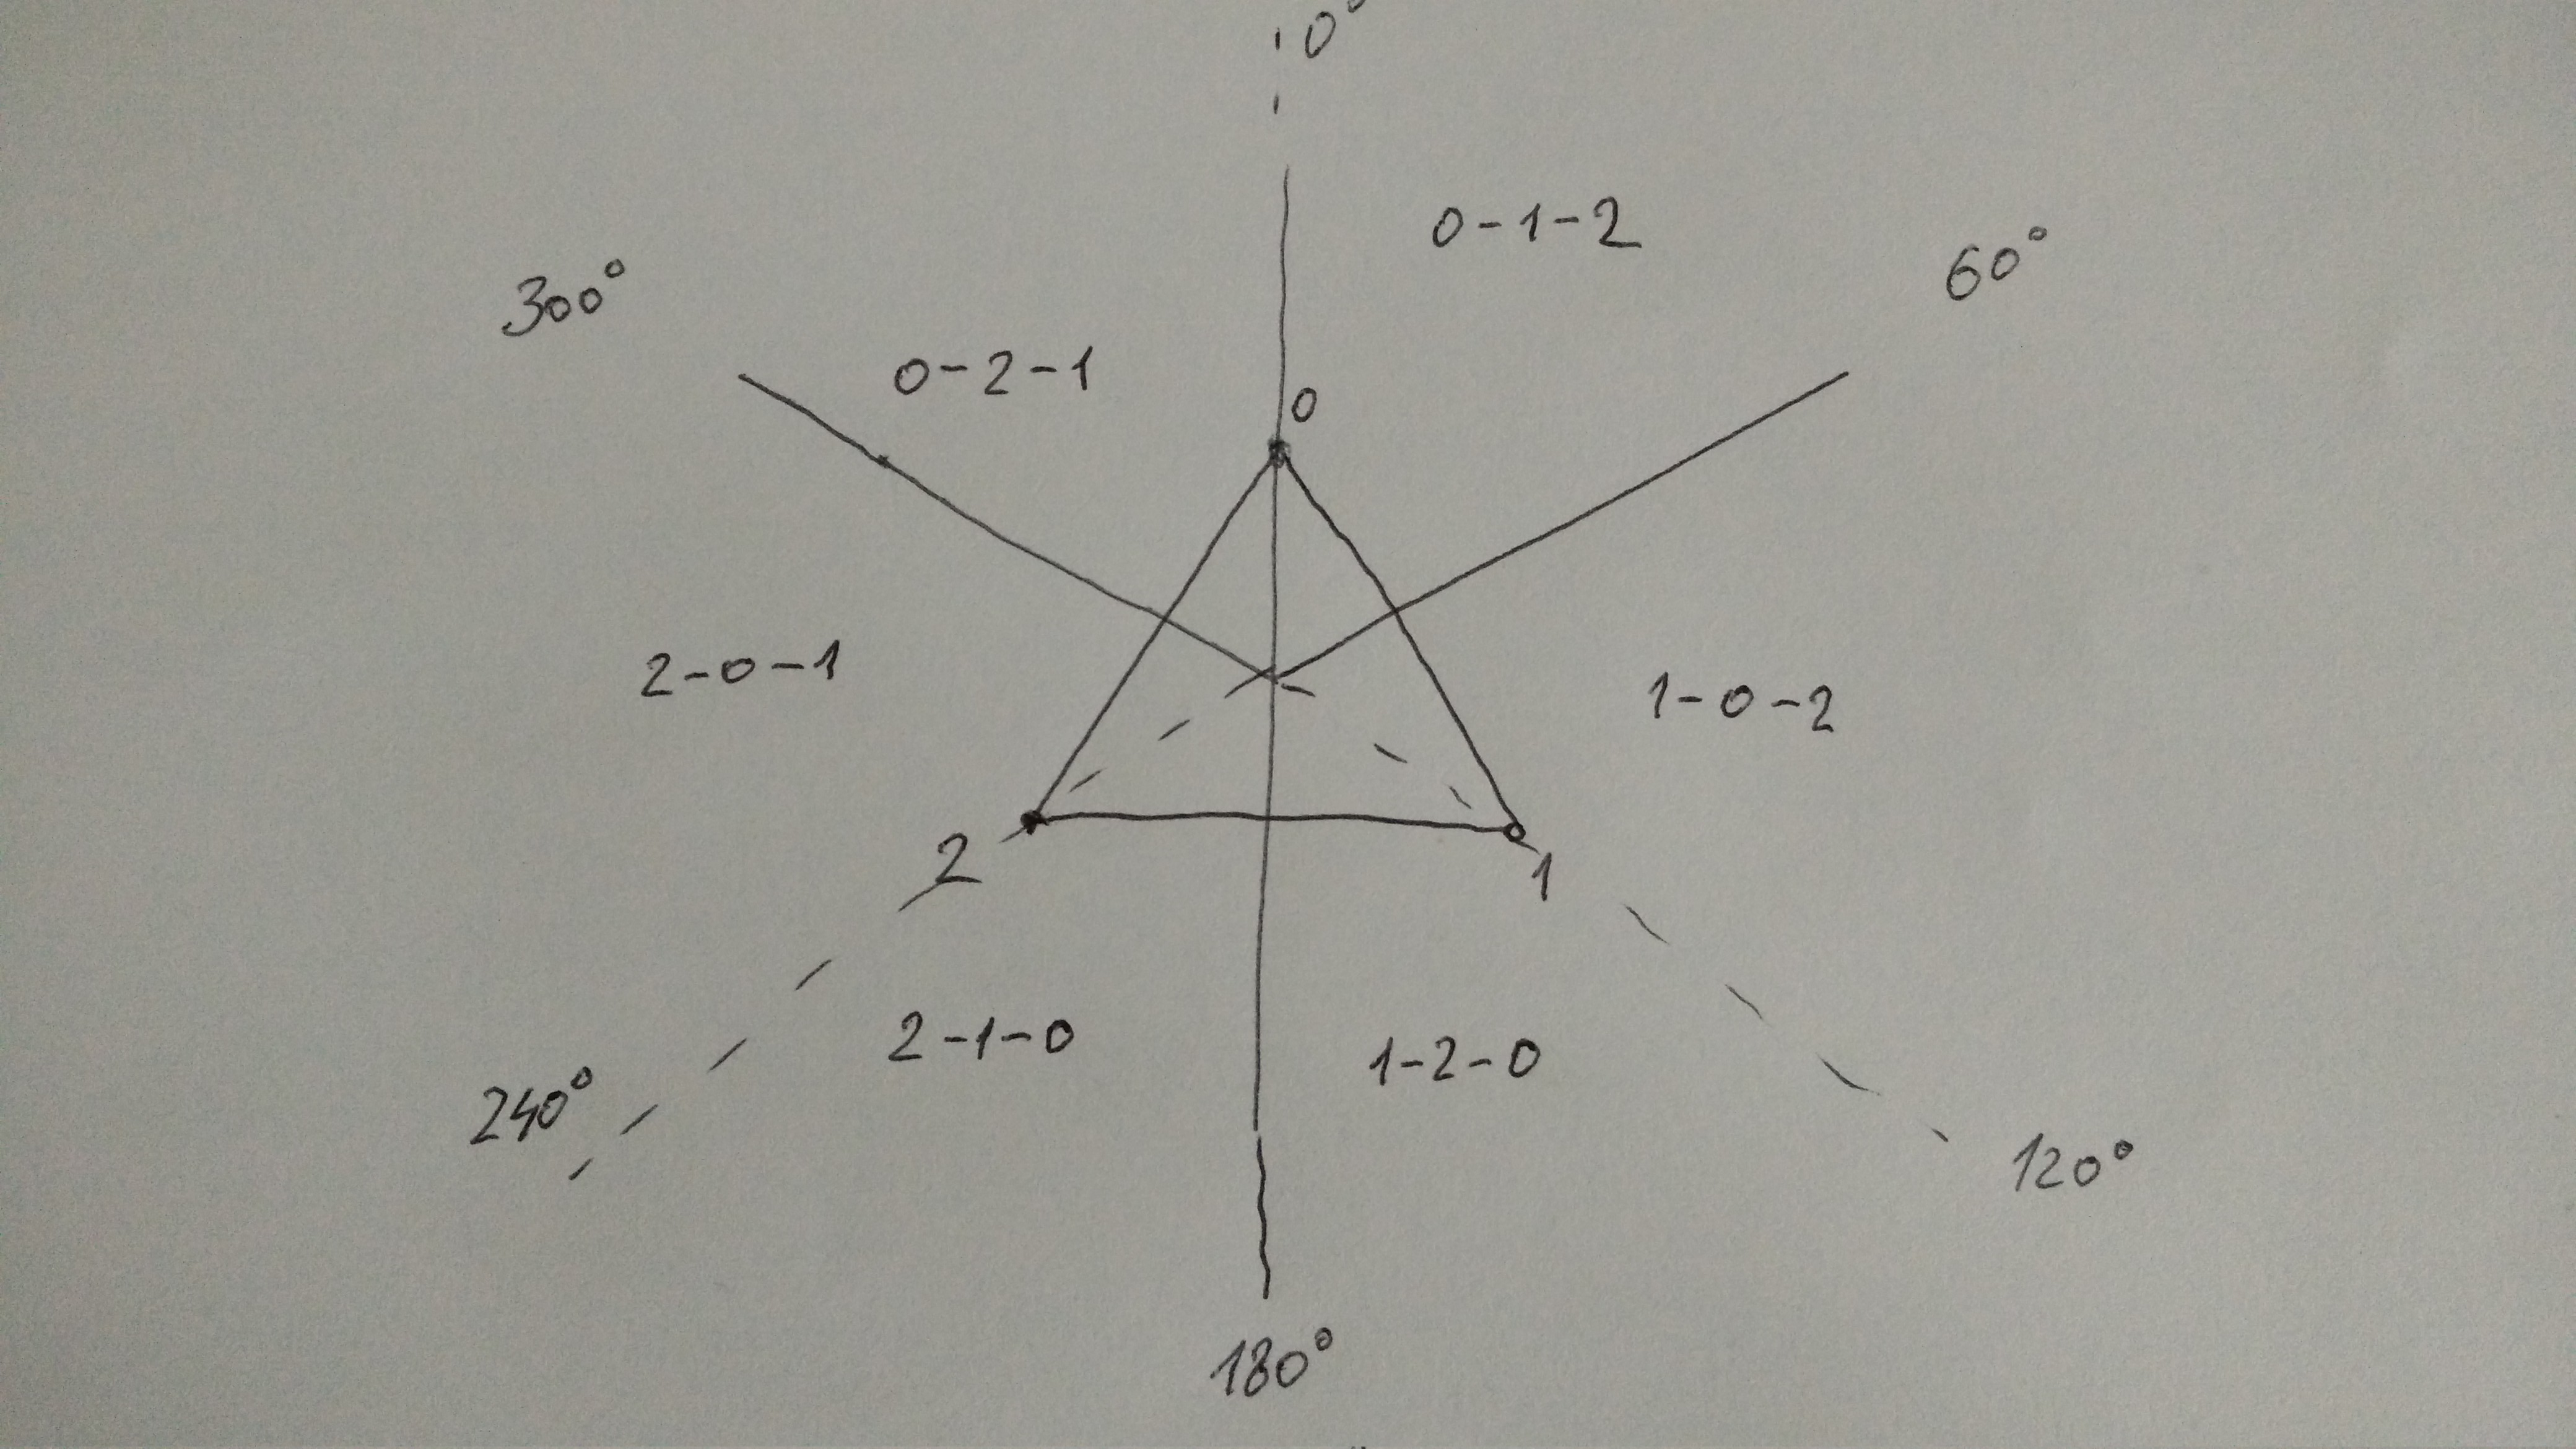 0°
0-1-2
60°
300°
0-2-1
0
2-0-1
1-0-2
2
1
2-1-0
1-2-0
240°
120°
180°